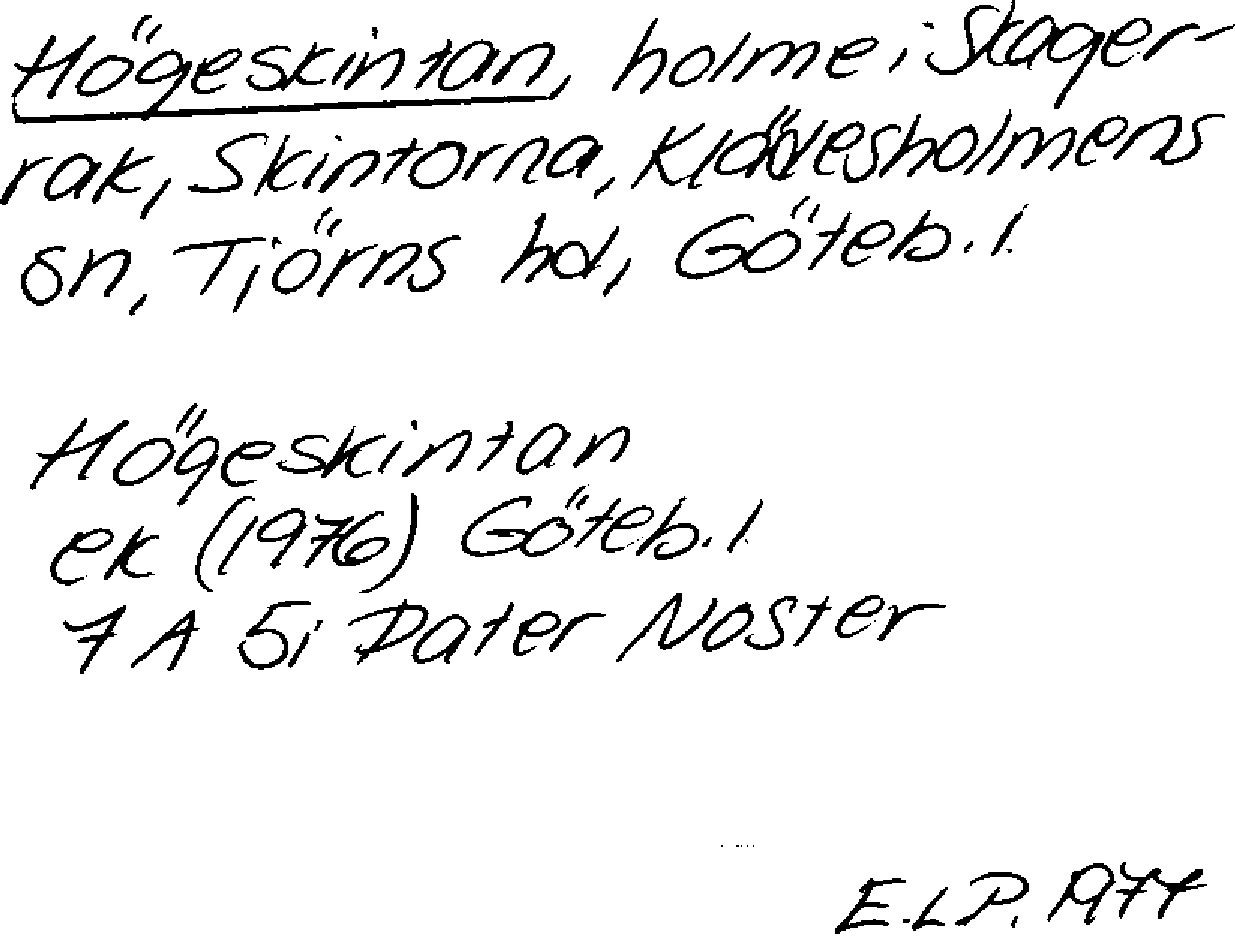 Högeskintan, holme i Skager-
rak, Skintorna, Klädesholmens
sn, Tjörns hd, Göteb. l.
Högeskintan
ek (1976) Göteb. l
7 A 5i Pater Noster
E.L.P. 1977